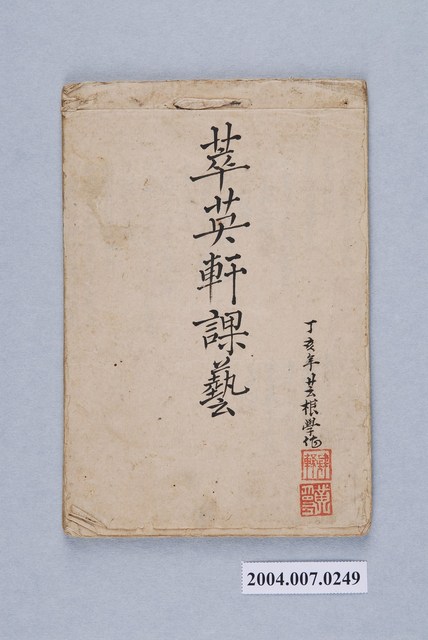 萃英軒課藝
丁亥年芸根學偹
2004.007.0249